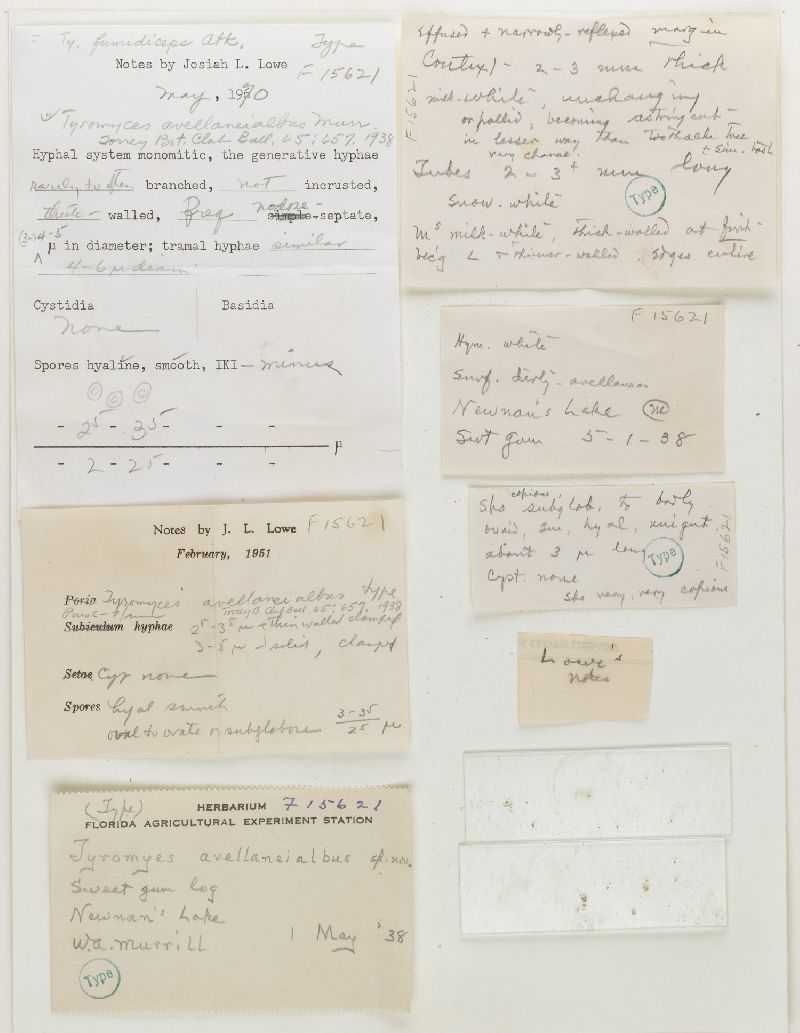 = Ty. fumidiceps Atk. Type
Notes by Josiah L. Lowe F 15621
May, 1970
Tyromyces avellaneialbus Murr.
Torrey Bot. Club Bull. 65:657. 1938
Hyphal system monomitic, the generative hyphae
rarely to often branched, not incrusted,
thick-walled, Freq nodose-simple-septate,
(3-)4-5 μ in diameter; tramal hyphae similar
4-6 μ diam
Cystidia Basidia
None
Spores hyaline, smooth, IKI - minus
- 25 - 35 - - -
μ
- 2 - 25 - - -
Notes by J. L. Lowe F 15621
February, 1951
Poria Tyromyces avellaneialbus type
Torrey B. Club Bull. 65:657. 1938
Subiculum hyphae 25-35 μ thin walled clamped
3-5 μ solid, clamped
Setae Cys none
Spores hyal smooth
oval to ovate or subglobose 3-35/25 μ
(Type) HERBARIUM F 15621
FLORIDA AGRICULTURAL EXPERIMENT STATION
Tyromyes avellaneialbus sp. nov.
Sweet gum log
Newnan's Lake
W.A. Murrill 1 May '38
Type
Effused + narrowly-reflexed margin
Context - 2-3 mm thick
milk-white, unchanging
or pallid, becoming astringent
in lesser way than Toothache Tree
very charac.
Tubes 2-3+ mm long
Snow-white
Type
Ms milk-white, thick-walled at first
bec'g L + thinner-walled. Edges entire
F 15621
F 15621
Hym. white
Surf. dirty-avellaneous
Newnan's Lake
Swt gum 5-1-38
copious,
Sps subglob. to broadly
ovoid, sm, hyal, unigut.
about 3 μ long
Type
Cyst. none
Sps very, very copious
F 15621
Lowe's
notes